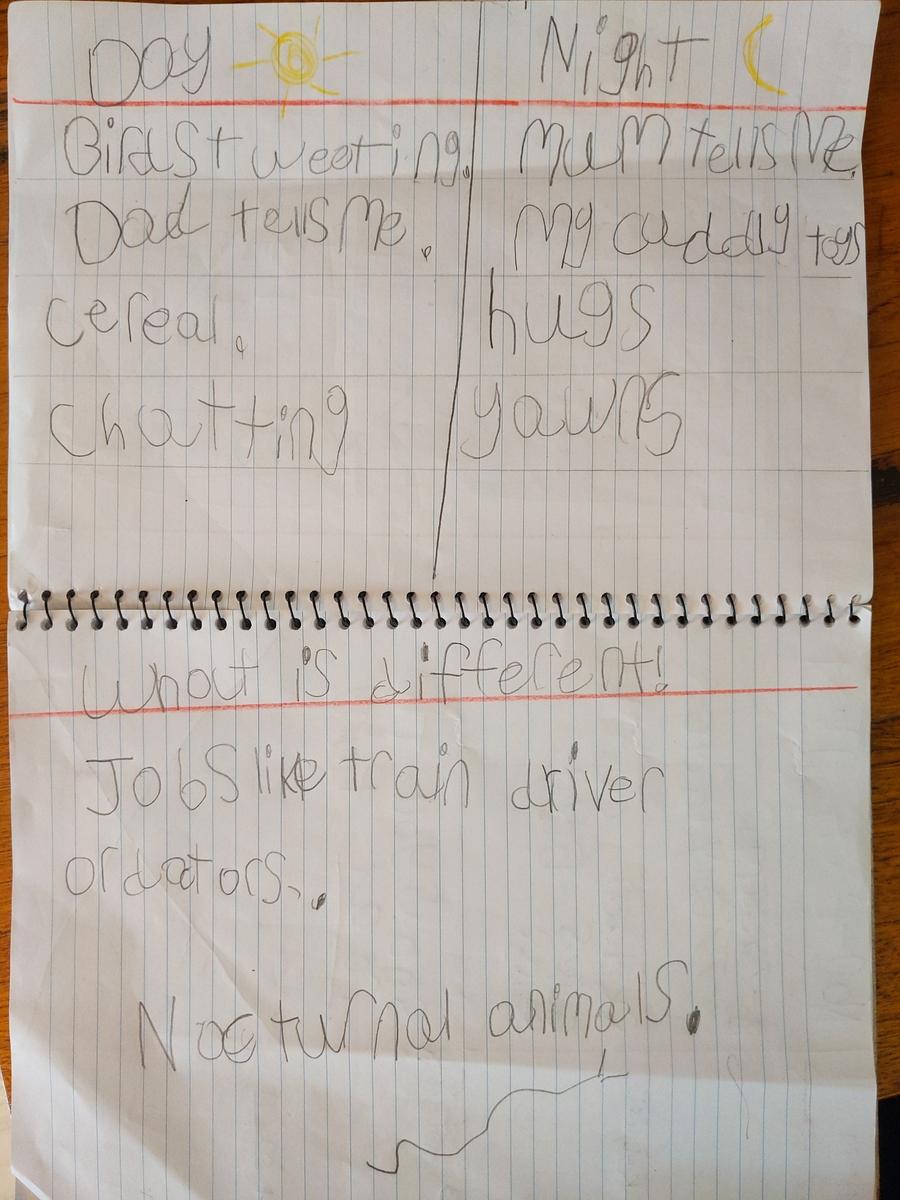 Day
Birds tweeting.
Dad tells Me.
cereal.
chatting
Night
MuM tells Me.
My cuddly toys
hugs
yawns
What is different!
Jobs like train driver
ordoctors..
Nocturnal animals.